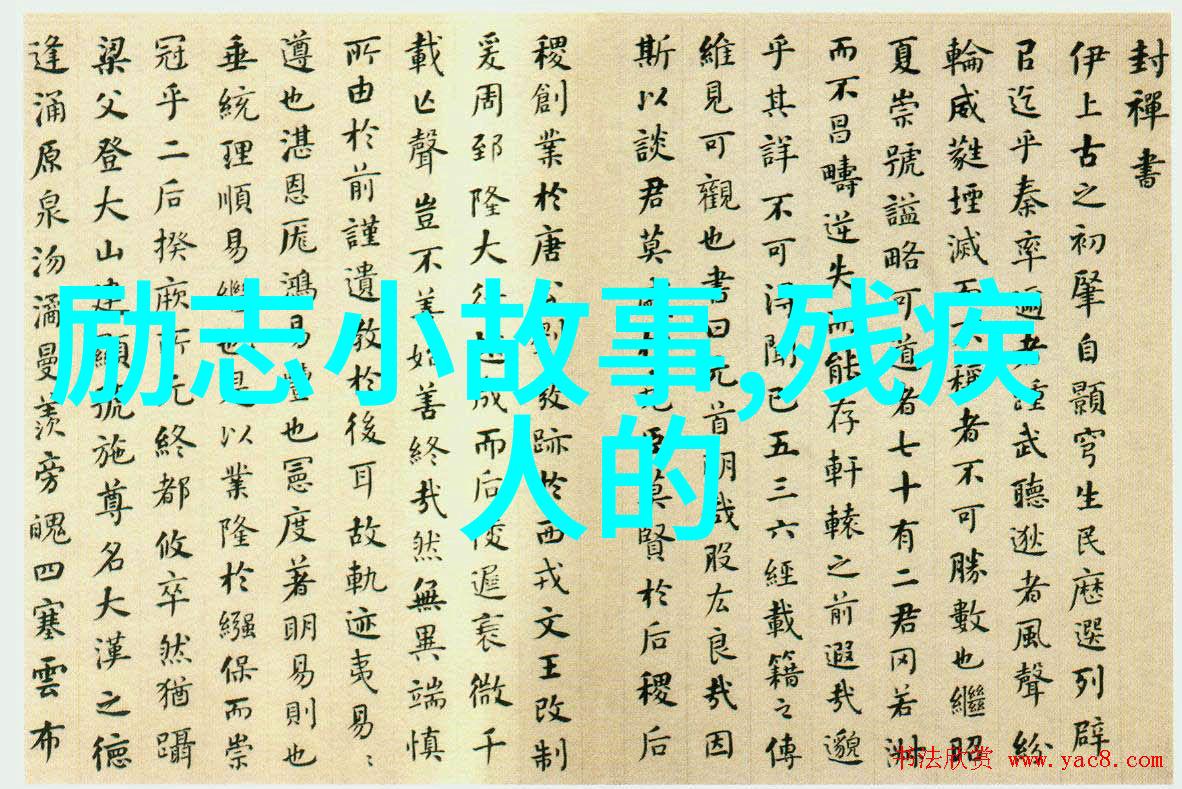 封禪書
伊上古之初肇自顥穹生民歷選列辟
㠯迄乎秦率邇者踵武聽逖者風聲紛
輪威蕤堙滅而不稱者不可勝數也繼昭
夏崇號謚略可道者七十有二君罔若淑
而不昌疇逆失而能存軒轅之前遐哉邈
乎其詳不可得聞已五三六經載籍之傳
維見可觀也書曰元首明哉股厷良哉因
斯以談君莫於堯臣莫賢於后稷后
稷創業於唐公劉發跡於西戎文王改制
爰周郅隆大行越成而后陵遲衰微千
載亡聲豈不善始善終哉然無異端慎
所由於前謹遺教於後耳故軌迹夷易〻
遵也湛恩厖鴻易豐也憲度著明易則也
垂統理順易繼也是以業隆於繈保而崇
冠乎二后揆厥所元終都攸卒然猶躡
梁父登大山建顯號施尊名大漢之德
逢涌原泉沕潏曼羨旁魄四塞雲布
励志小故事,残疾
人的
书法欣赏 www.yac8.com